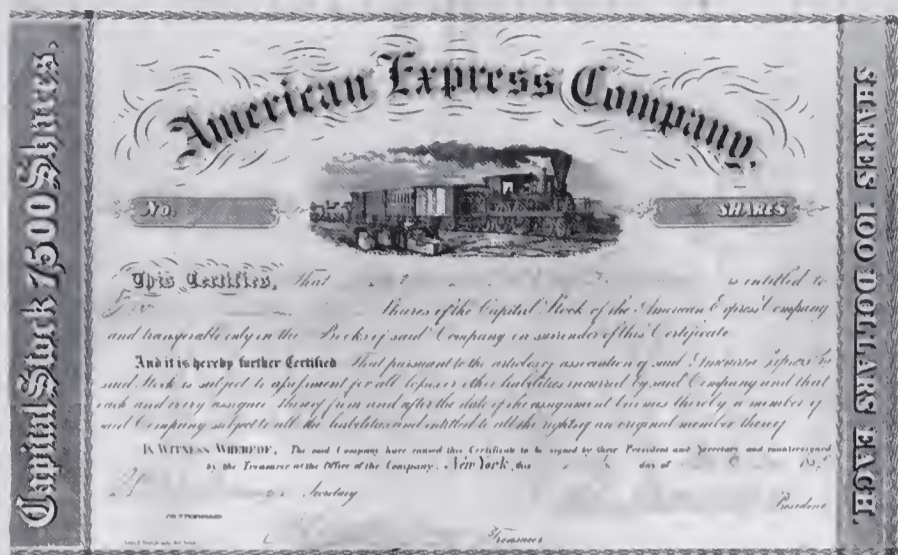 Capital Stock 7500 Shares,
American Express Company,
No.
SHARES
This Certifies, That is entitled to
Shares of the Capital Stock of the American Express Company
and transferable only in the Books of said Company on surrender of this Certificate
And it is hereby further Certified That pursuant to the articles of association of said American Express Co
said Stock is subject to assessment for all losses or other liabilities incurred by said Company and that
each and every assignee thereof from and after the date of the assignment becomes thereby a member of
said Company subject to all the liabilities and entitled to all the rights of an original member thereof
IN WITNESS WHEREOF, The said Company have caused this Certificate to be signed by their President and Secretary and countersigned
by the Treasurer at the Office of the Company, New York, this day of
Secretary
President
Treasurer
SHARES 100 DOLLARS EACH.